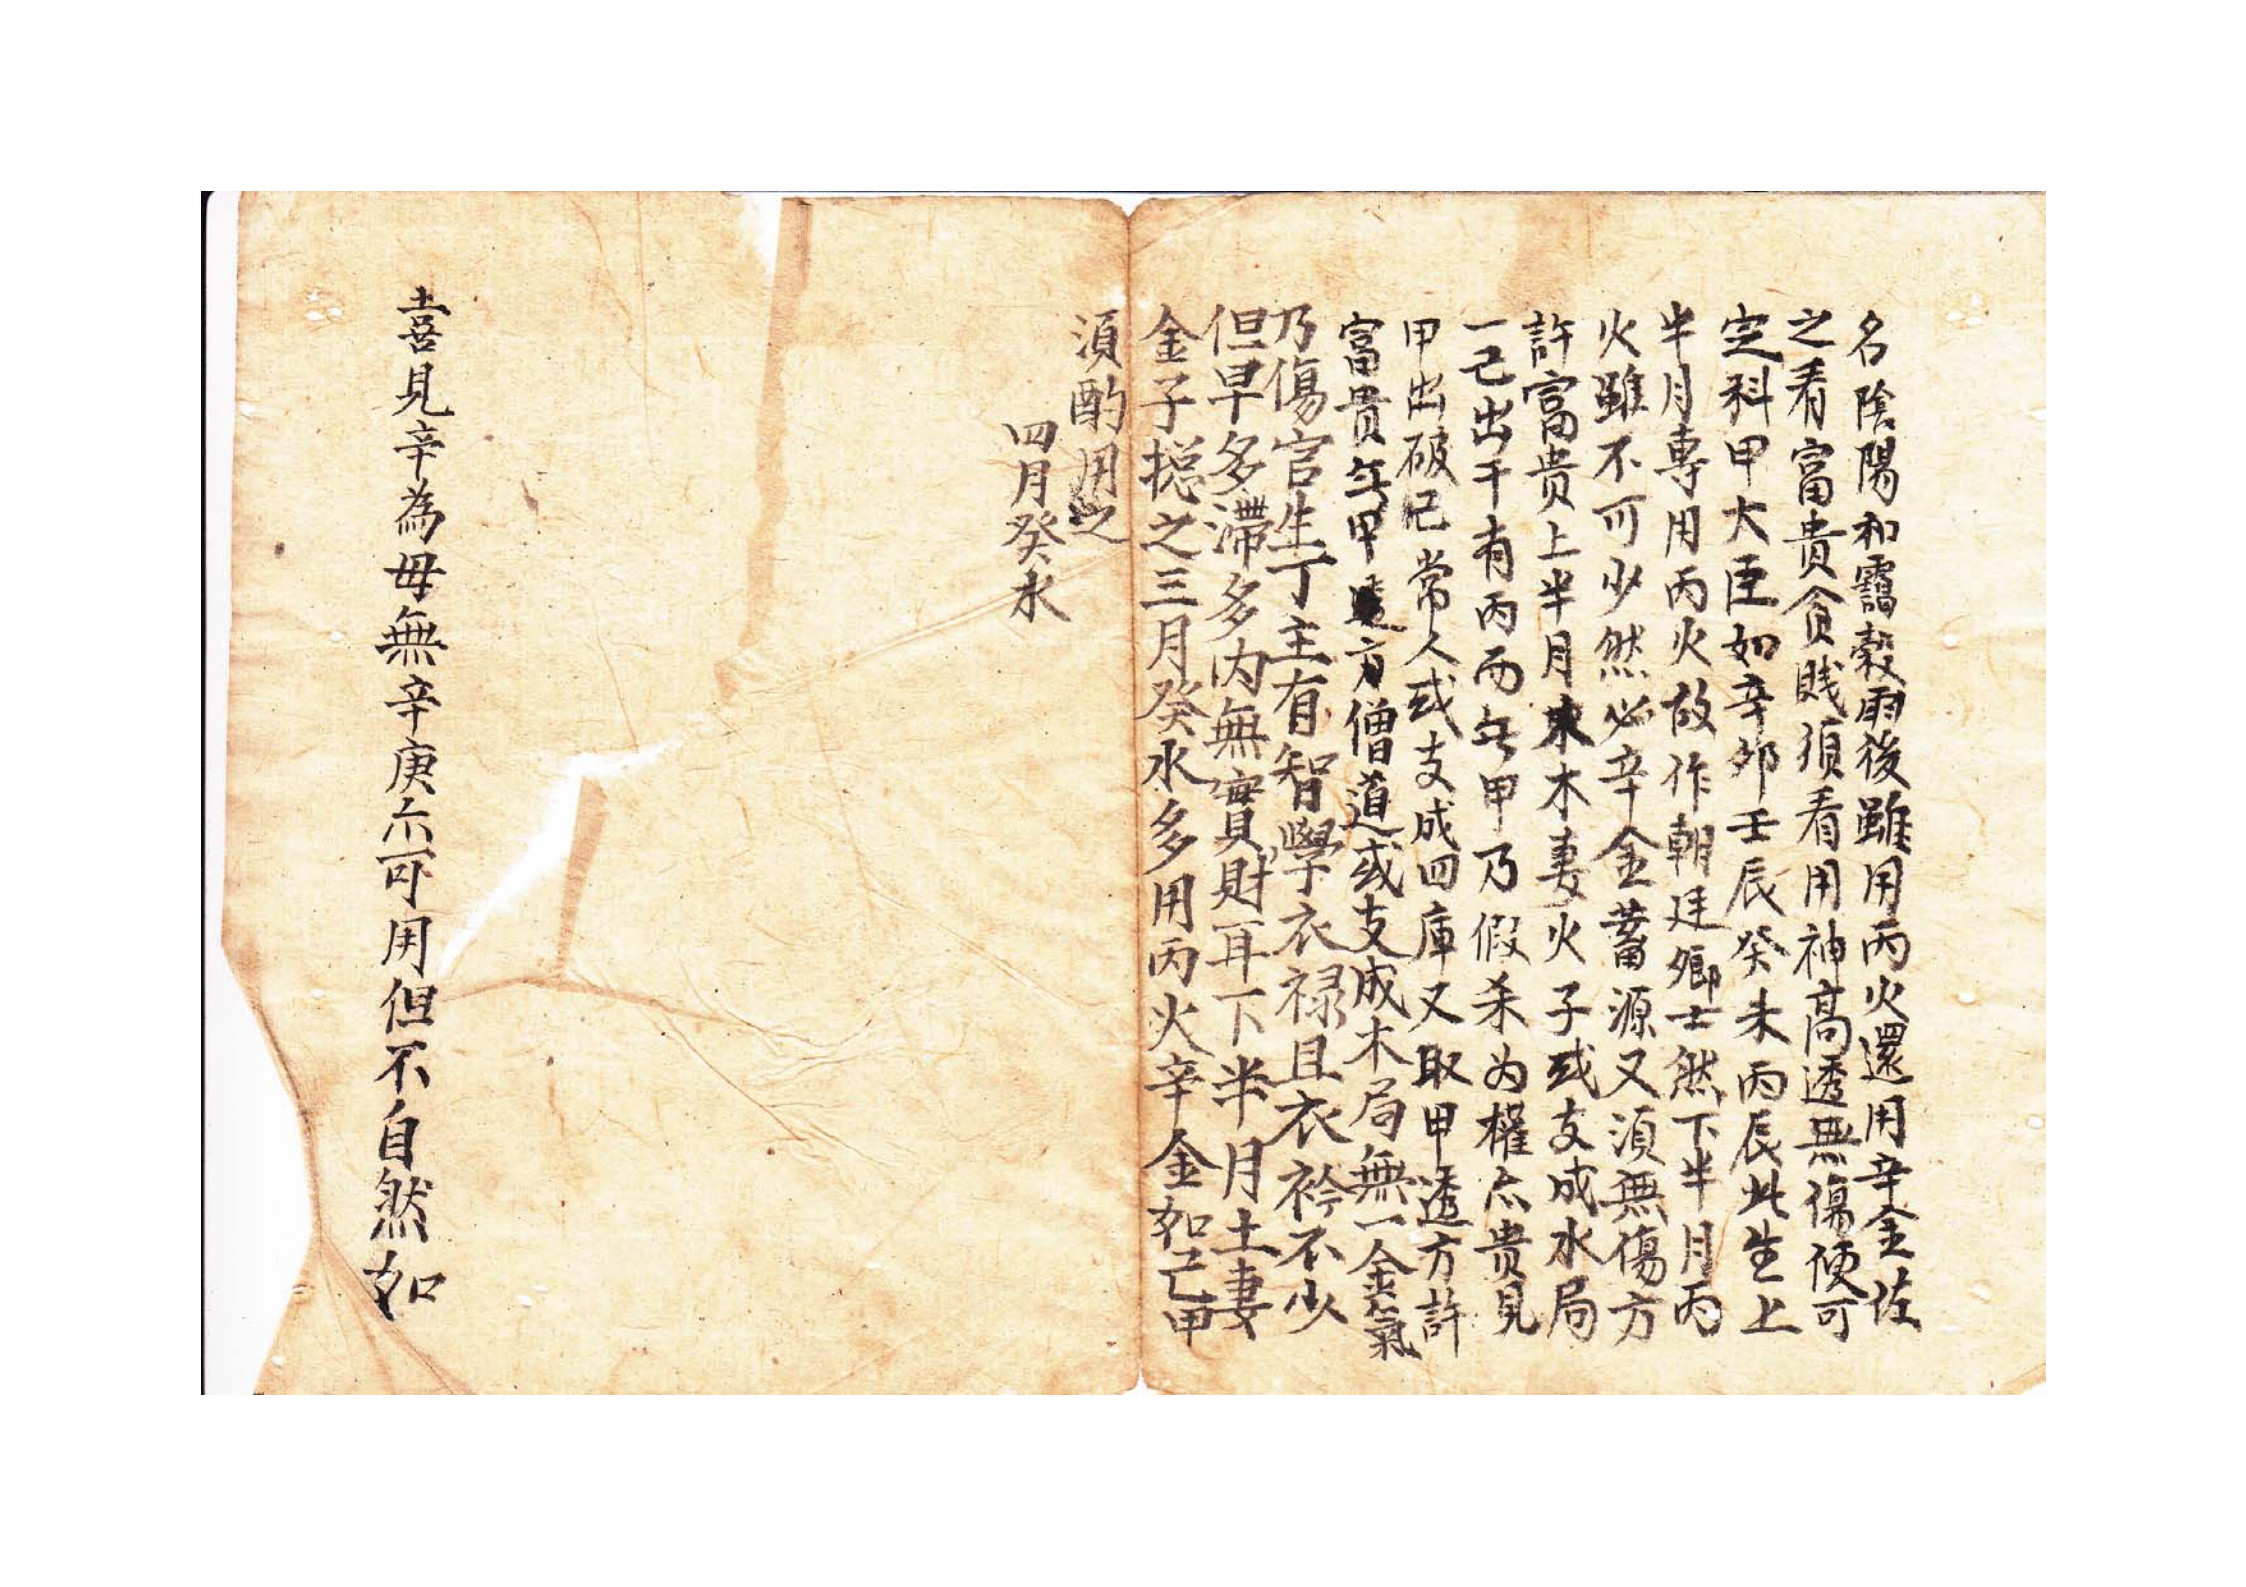 名陰陽和靄穀雨後雖用丙火還用辛金佐
之看富貴貪賎須看用神高透無傷便可
定科甲大臣如辛夘壬辰癸未丙辰此生上
半月專用丙火故作朝廷鄉士然下半月丙
火雖不可少然必辛金蓄源又須無傷方
許富贵上半月木妻火子或支成水局
一己出干有丙而無甲乃假杀为權亦贵見
甲出破己常人或支成四庫又取甲透方許
富貴無甲透方僧道或支成木局無一金氣
乃傷官生丁主有智學衣禄且衣衿不少
但早多滯多内無實財耳下半月土妻
金子摠之三月癸水多用丙火辛金如己甲
須酌用之
四月癸水
喜見辛為毋無辛庚亦可用但不自然如